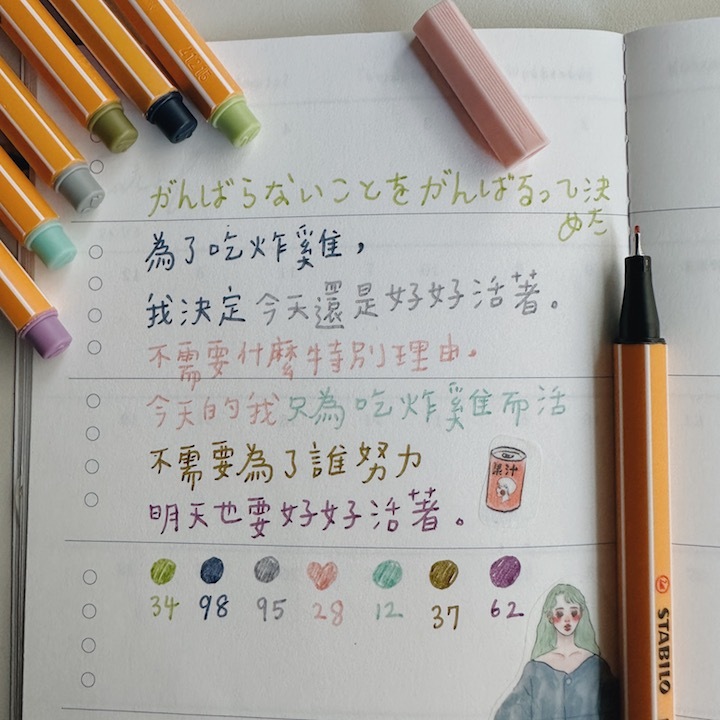 がんばらないことをがんばるって決
めた
為了吃炸雞，
我決定今天還是好好活著。
不需要什麼特別理由。
今天的我只為吃炸雞而活
不需要為了誰努力
明天也要好好活著。
果汁
34 98 95 28 12 37 62
STABILO